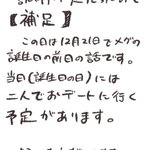 【補足】
この日は12月21日でメグの
誕生日の前日の話です。
当日(誕生日の日)には
二人でおデートに行く
予定があります。